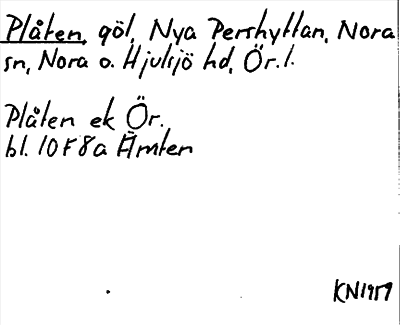 Plåten, göl, Nya Pershyttan, Nora
sn, Nora o. Hjulsjö hd, Ör. l.
Plåten ek Ör.
bl. 10F8a Åmten
KN1959